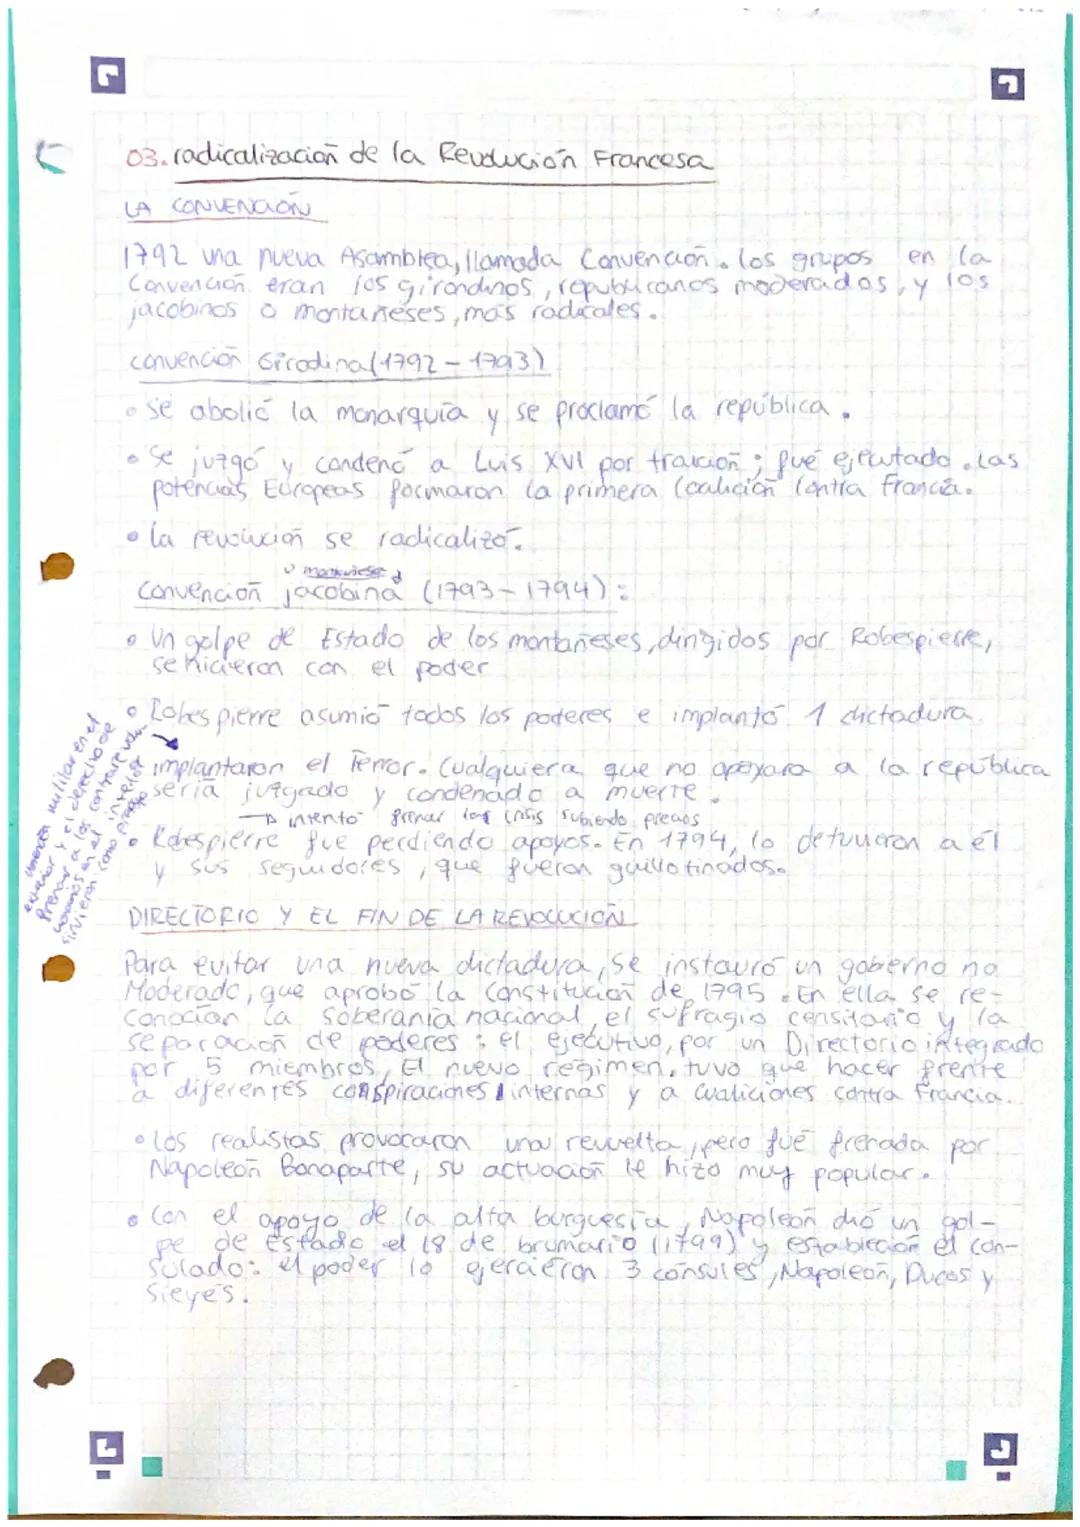 03. radicalización de la Revolución Francesa
LA CONVENCIÓN
1792 una nueva Asamblea, llamada Convención. los grupos en la
Convención eran los girondinos, republicanos moderados, y los
jacobinos o montañeses, más radicales.
convención Girodina (1792 - 1793)
• Se abolió la monarquía y se proclamó la república.
• Se juzgó y condenó a Luis XVI por traición; fué ejecutado. Las
potencias Europeas formaron la primera coalición contra Francia.
• la revolución se radicalizó.
o montañesa
convención jacobina (1793 - 1794):
• Un golpe de Estado de los montañeses, dirigidos por Robespierre,
se hicieron con el poder
• Robespierre asumió todos los poderes e implantó 1 dictadura
implantaron el Terror. Cualquiera que no apoyara a la república
sería juzgado y condenado a muerte.
→ intentó frenar las crisis subiendo precios
• Robespierre fue perdiendo apoyos. En 1794, lo detuvieron a él
y sus seguidores, que fueron guillotinados.
militar en el
exterior y el derecho de
frenar a los
en el interior
sirvieron como
DIRECTORIO Y EL FIN DE LA REVOLUCIÓN
Para evitar una nueva dictadura, se instauró un gobierno no
Moderado, que aprobó la Constitución de 1795. En ella se re-
conocían la soberanía nacional, el sufragio censitario y la
separación de poderes: el ejecutivo, por un Directorio integrado
por 5 miembros, El nuevo régimen, tuvo que hacer frente
a diferentes conspiraciones internas y a coaliciones contra Francia.
• los realistas provocaron una revuelta, pero fué frenada por
Napoleón Bonaparte, su actuación le hizo muy popular.
• Con el apoyo de la alta burguesía, Napoleón dió un gol-
pe de Estado el 18 de brumario (1799) y establecion el con-
sulado: el poder lo ejercieron 3 cónsules, Napoleón, Ducos y
Sieyés.